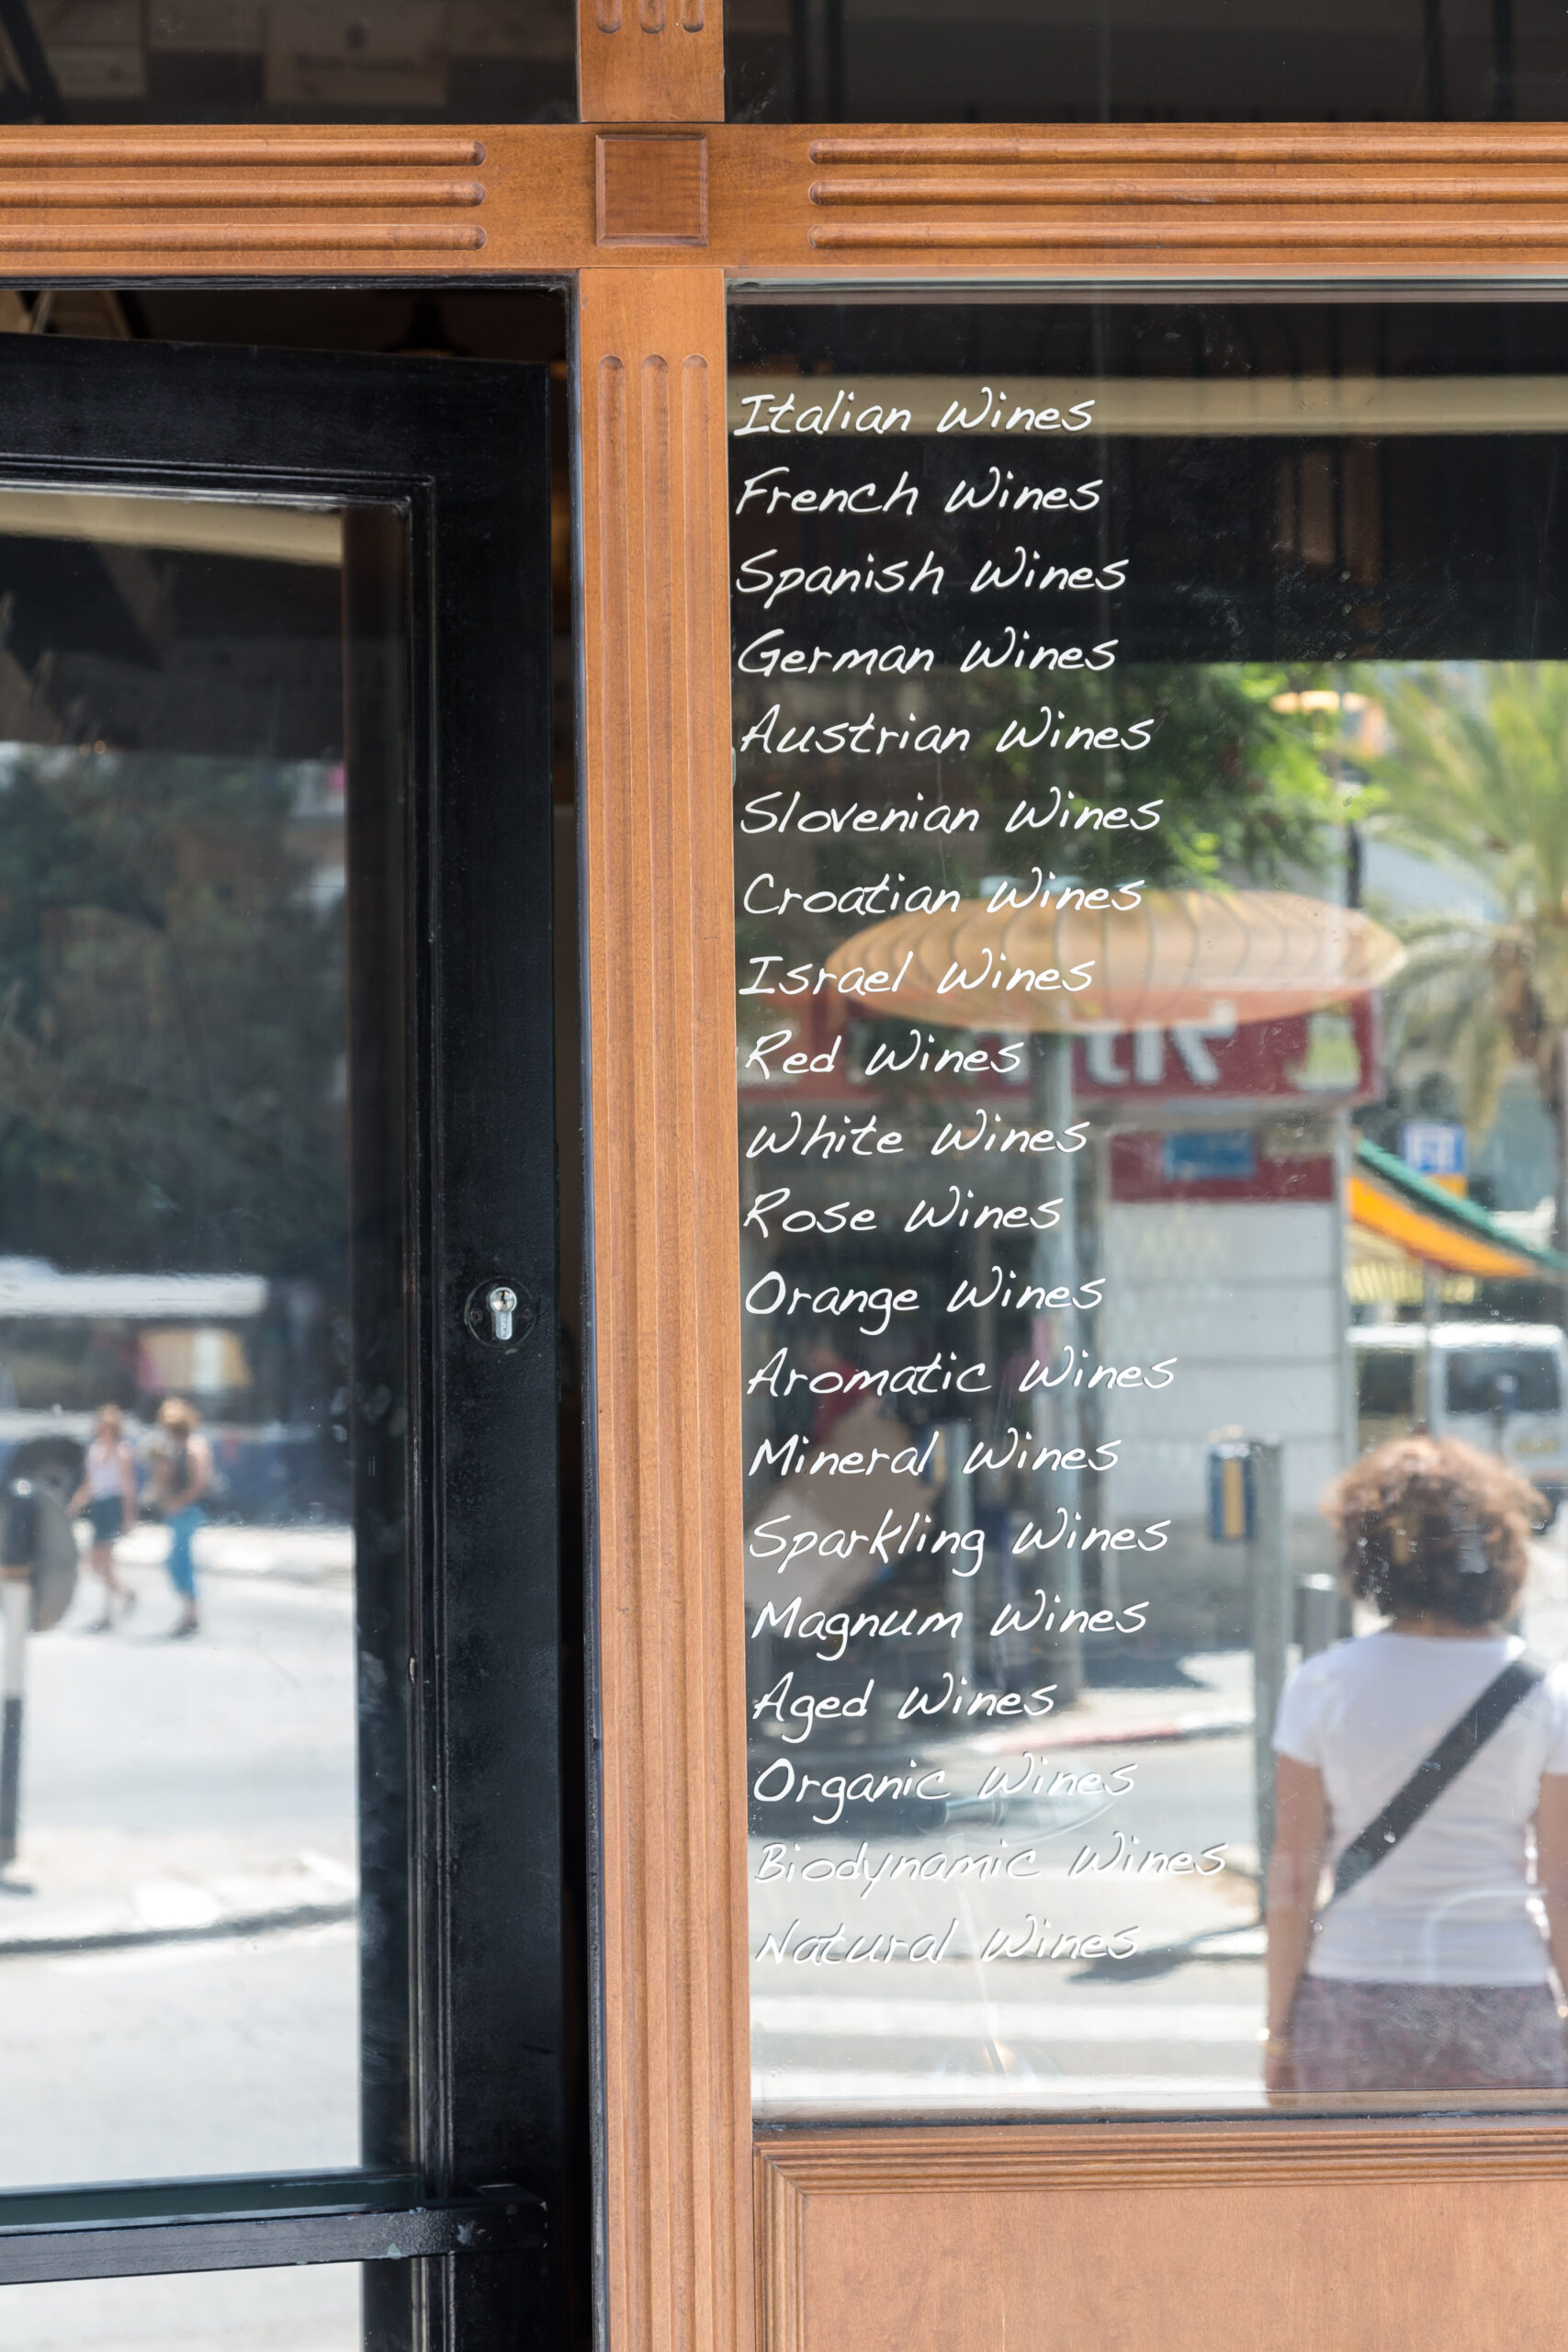 Italian Wines
French Wines
Spanish Wines
German Wines
Austrian Wines
Slovenian Wines
Croatian Wines
Israel Wines
Red Wines
White Wines
Rose Wines
Orange Wines
Aromatic Wines
Mineral Wines
Sparkling Wines
Magnum Wines
Aged Wines
Organic Wines
Biodynamic Wines
Natural Wines